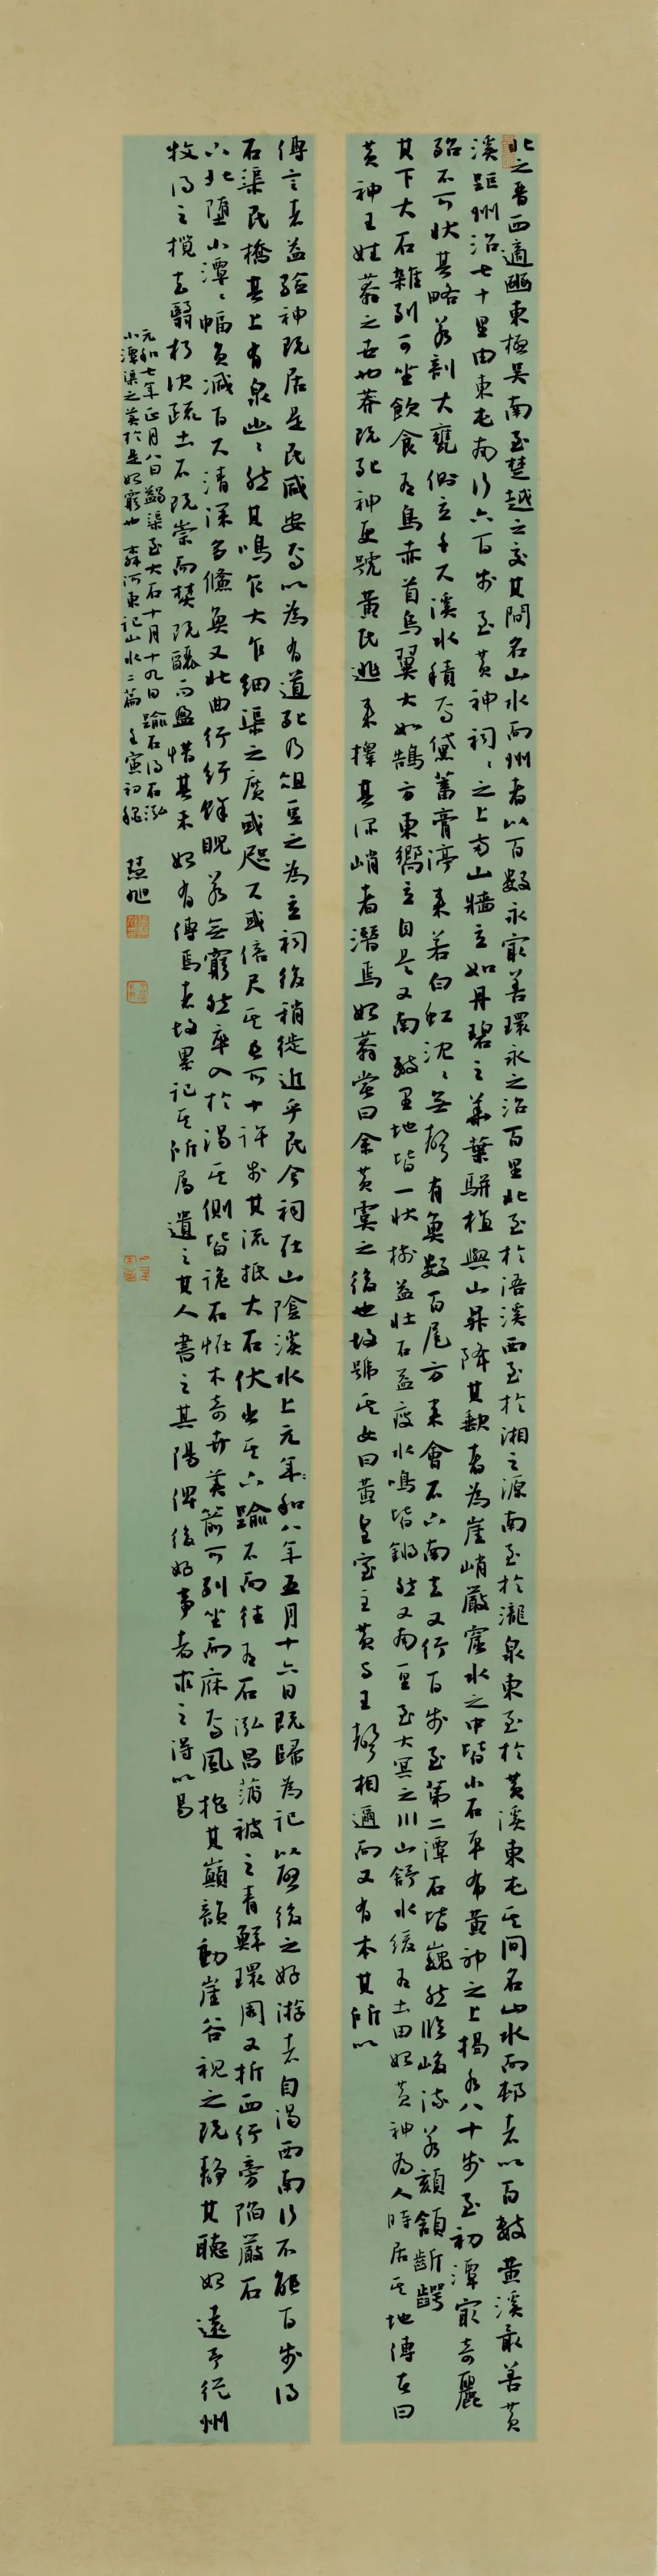 北之晋西適豳東極吴南至楚越之交其間名山水而州者以百數永最善環永之治百里北至於浯溪西至於湘之源南至於瀧泉東至於黄溪東屯其間名山水而村者以百數黄溪最善黄
溪距州治七十里由東屯南行六百步至黄神祠祠之上兩山牆立如丹碧之華葉駢植與山升降其缺者為崖峭巖窟水之中皆小石平布黄神之上揭水八十步至初潭最奇麗
殆不可狀其略若剖大甕側立千尺溪水積焉黛蓄膏渟来若白虹沈沈無聲有魚數百尾方来會石下南去又行百步至第二潭石皆巍然臨峻流若頦頷齗齶
其下大石雜列可坐飲食有鳥赤首烏翼大如鵠方東嚮立自是又南數里地皆一狀樹益壯石益瘦水鳴皆鏘然又南一里至大冥之川山舒水緩有土田始黄神為人時居其地傳者曰
黄神王姓莽之世也莽既死神更號黄氏逃来擇其深峭者潛焉始莽嘗曰余黄虞之後也故號其女曰黄皇室主黄與王聲相邇而又有本其所以
傳言者益驗神既居是民咸安焉以為有道死乃俎豆之為立祠後稍徙近乎民今祠在山陰溪水上元年和八年五月十六日既歸為記以啓後之好游者自渴西南行不能百步得
石渠民橋其上有泉幽幽然其鳴乍大乍細渠之廣或咫尺或倍尺其長可十許步其流抵大石伏出其下踰石而往有石泓昌蒲被之青鮮環周又折西行旁陷巖石
下北墮小潭潭幅員減百尺清深多儵魚又北曲行紆餘睨若無窮然卒入於渴其側皆詭石怪木奇卉美箭可列坐而庥焉風摇其巔韻動崖谷視之既静其聽始遠予從州
牧得之攬去翳朽决疏土石既崇而焚既釃而盈惜其未始有傳焉者故累記其所屬遺之其人書之其陽俾後好事者求之得以易
元和七年正月八日蠲渠至大石十月十九日踰石得石泓
小潭渠之美於是始窮也 柳河東記山水二篇 壬寅初秋 慧旭